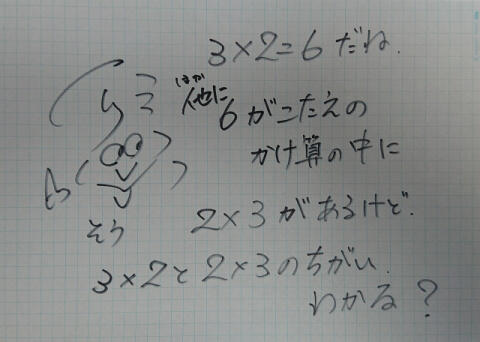 3×2=6 だね.
ほか
他に
6がこたえの
かけ算の中に
2×3があるけど.
3×2と2×3のちがい.
わかる?
そう